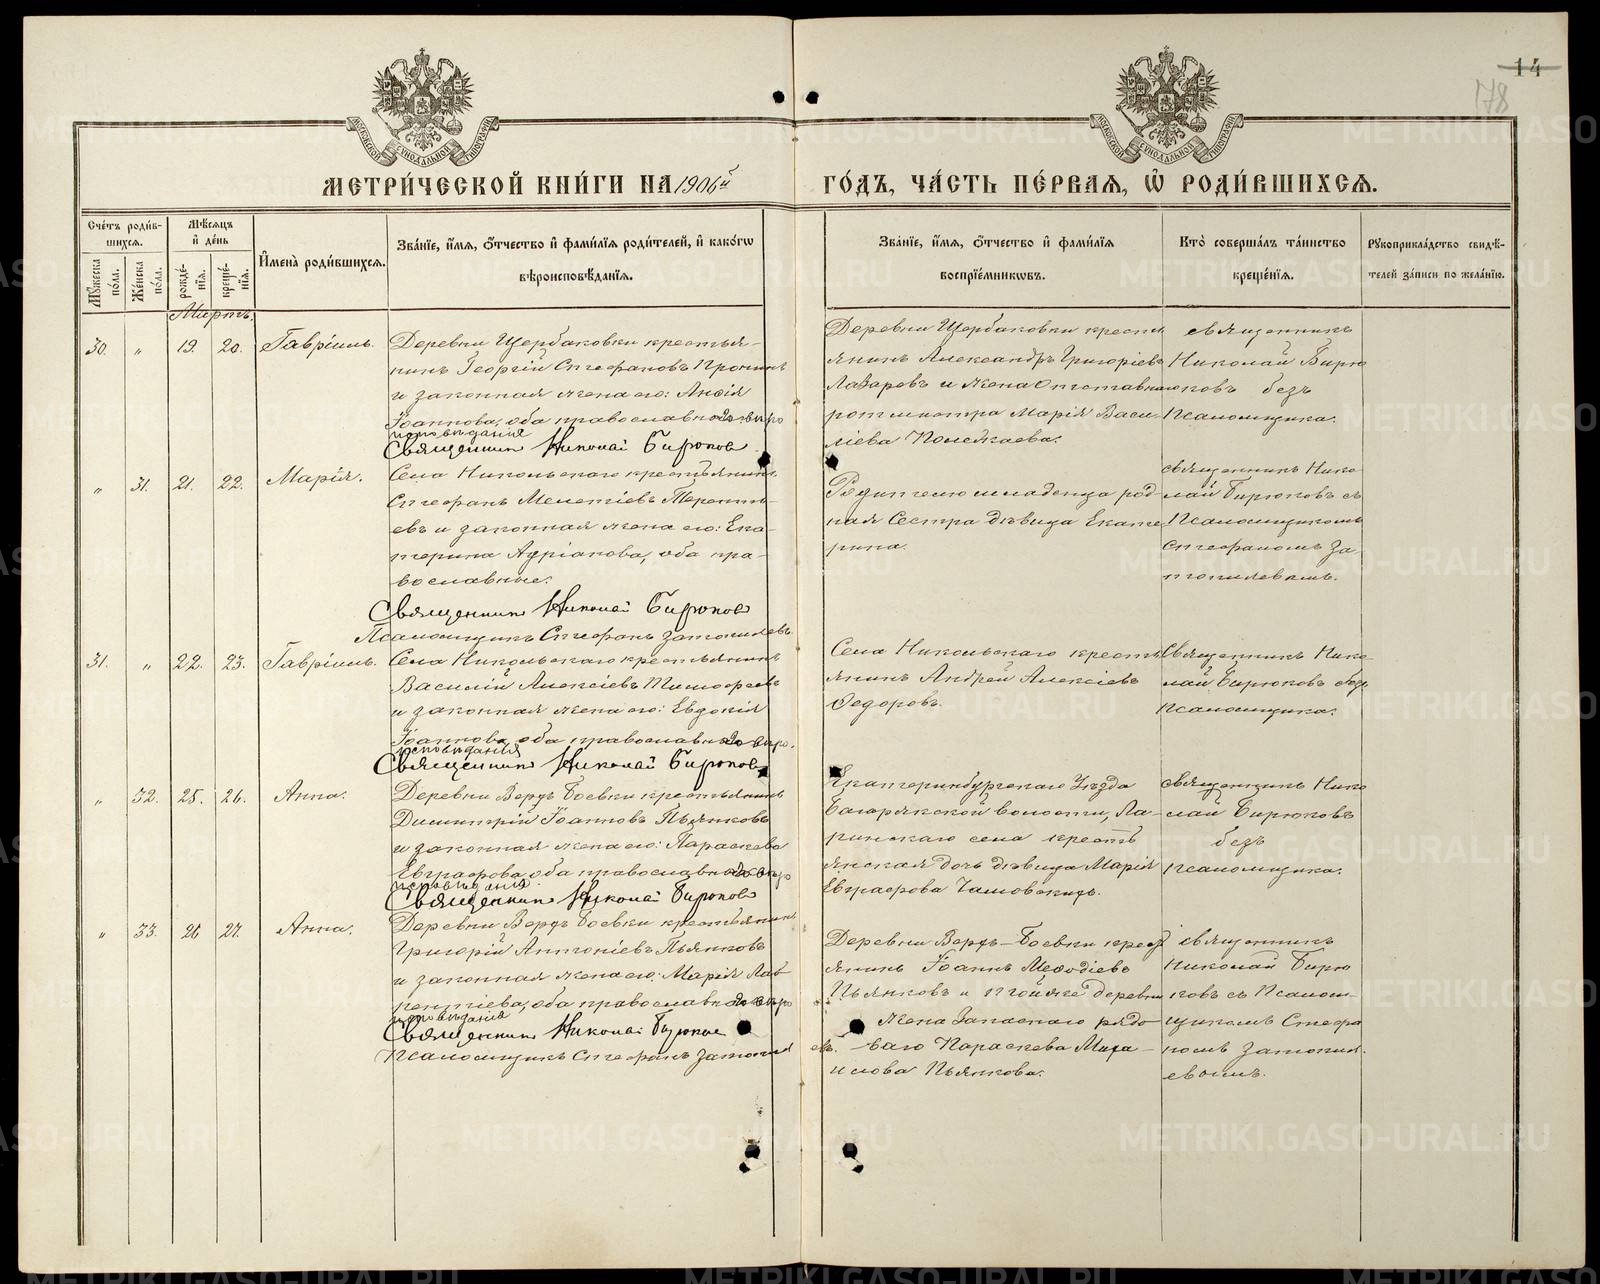 14
178
МОСКОВСКОЙ СѴНОДАЛЬНОЙ ТИПОГРАФІИ
МОСКОВСКОЙ СѴНОДАЛЬНОЙ ТИПОГРАФІИ
МЕТРИ́ЧЕСКОЙ КНИ́ГИ НА 1906й ГО́ДЪ, ЧА́СТЬ ПЕ́РВАЯ, Ѡ҆ РОДИ́ВШИХСѦ.
Сче́тъ роди́в-
шихсѧ.
Мꙋ́жеска по́ла.
Же́нска по́ла.
Мѣ́сѧцъ
и҆ де́нь
рожде́-
нїѧ.
креще́-
нїѧ.
И҆мена̀ роди́вшихсѧ.
Зва́нїе, и҆́мѧ, ѻ҆́тчество и҆ фами́лїѧ роди́телей, и҆ како́гѡ
вѣроисповѣ́данїѧ.
Зва́нїе, и҆́мѧ, ѻ҆́тчество и҆ фами́лїѧ
воспрїе́мникѡвъ.
Кто̀ соверша́лъ та́инство
креще́нїѧ.
Рꙋкоприкла́дство свидѣ́-
телей за́писи по жела́нїю.
Мартъ.
30. „ 19. 20. Гавріилъ.
Деревни Щербаковки крестья-
нинъ Георгій Стефановъ Пронинъ
и законная жена его:
Іоанновна, оба православнаго вѣро
исповѣданія
Священник Николай Бирюков
Деревни Щербаковки крестъ
янинъ Александръ Григоріевъ
Лазаревъ и жена отставнаго
ротмистра Марія Васи-
ліева Полежаева.
священникъ
Николай Бирю
ковъ безъ
Псаломщика.
„ 31. 21. 22. Марія.
Села Никольскаго крестьянинъ
Стефанъ Мелетіевъ Теренть-
евъ и законная жена его: Ека-
терина Адріанова, оба пра-
вославные.
Священник Николай Бирюков
Псаломщикъ Стефанъ Затопляевъ
Родителю младенца род-
ная Сестра дѣвица Екате
рина.
священникъ Нико-
лай Бирюковъ съ
Псаломщикомъ
Стефаномъ За
топляевымъ.
31. „ 22. 23. Гавріилъ.
Села Никольскаго крестьянинъ
Василій Алексіевъ Тимофеевъ
и законная жена его: Евдокія
Іоаннова, оба православнаго вѣро.
исповѣданія
Священник Николай Бирюков
Села Никольскаго крестъ
янинъ Андрей Алексіевъ
Ѳедоровъ.
Священникъ Нико-
лай Бирюковъ безъ
Псаломщика.
„ 32. 25. 26. Анна.
Деревни Верхъ Боевки крестьянинъ
Димитрій Іоанновъ Пьянковъ
и законная жена его: Параскева
Евграфова, оба православнаго вѣро
исповѣданія.
Священник Николай Бирюков
Екатеринбургскаго Уѣзда
Багарякской волости, Ла-
ринскаго села кресть
янская дочь дѣвица Марія
Евграфова
священникъ Нико
лай Бирюковъ
безъ
Псаломщика.
„ 33. 26 27. Анна.
Деревни Верхъ Боевки крестьянинъ
Григорій Антоніевъ Пьянковъ
и законная жена его: Марія Лав
рентіева, оба православнаго вѣро
исповѣданія
Священник Николай Бирюков
Псаломщикъ Стефанъ Затопля
евъ.
Деревни Верхъ-Боевки крест
янинъ Іоаннъ Меѳодіевъ
Пьянковъ и тойже деревни
жена Запаснаго рядо
ваго Параскева Миха-
илова Пьянкова.
священникъ
Николай Бирю
ковъ съ Псалом-
щикомъ Стефа
номъ Затопля-
евымъ.
METRIKI.GASO-URAL.RU